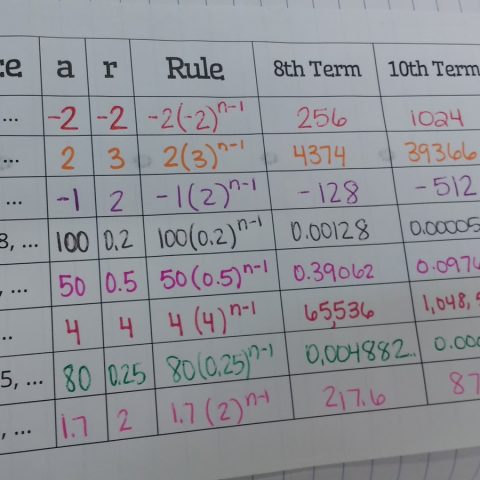 ce a r Rule 8th Term 10th Term
... -2 -2 -2(-2)^n-1 256 1024
... 2 3 2(3)^n-1 4374 39366
... -1 2 -1(2)^n-1 -128 -512
8, ... 100 0.2 100(0.2)^n-1 0.00128 0.00005
, ... 50 0.5 50(0.5)^n-1 0.39062 0.0976
.. 4 4 4(4)^n-1 65,536 1,048,5
5, ... 80 0.25 80(0.25)^n-1 0.004882.. 0.000
, ... 1.7 2 1.7(2)^n-1 217.6 87